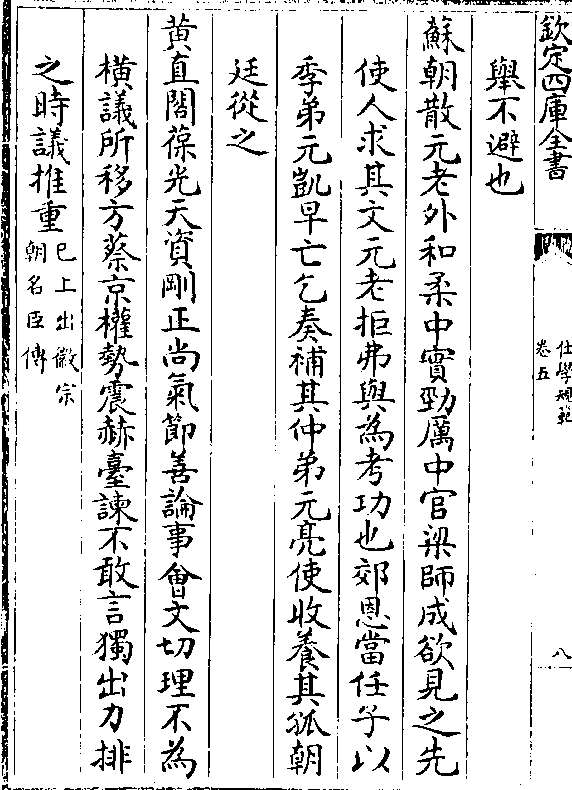 欽定四庫全書
仕學規範
卷五
八
舉不避也
蘇朝散元老外和柔中實勁厲中官梁師成欲見之先
使人求其文元老拒弗與為考功也郊恩當任子以
季弟元凱早亡乞奏補其仲弟元亮使收養其孤朝
廷從之
黄直閣葆光天資剛正尚氣節善論事會文切理不為
橫議所移方蔡京權勢震赫臺諫不敢言獨出力排
之時議推重
已上出徽宗
朝名臣傳